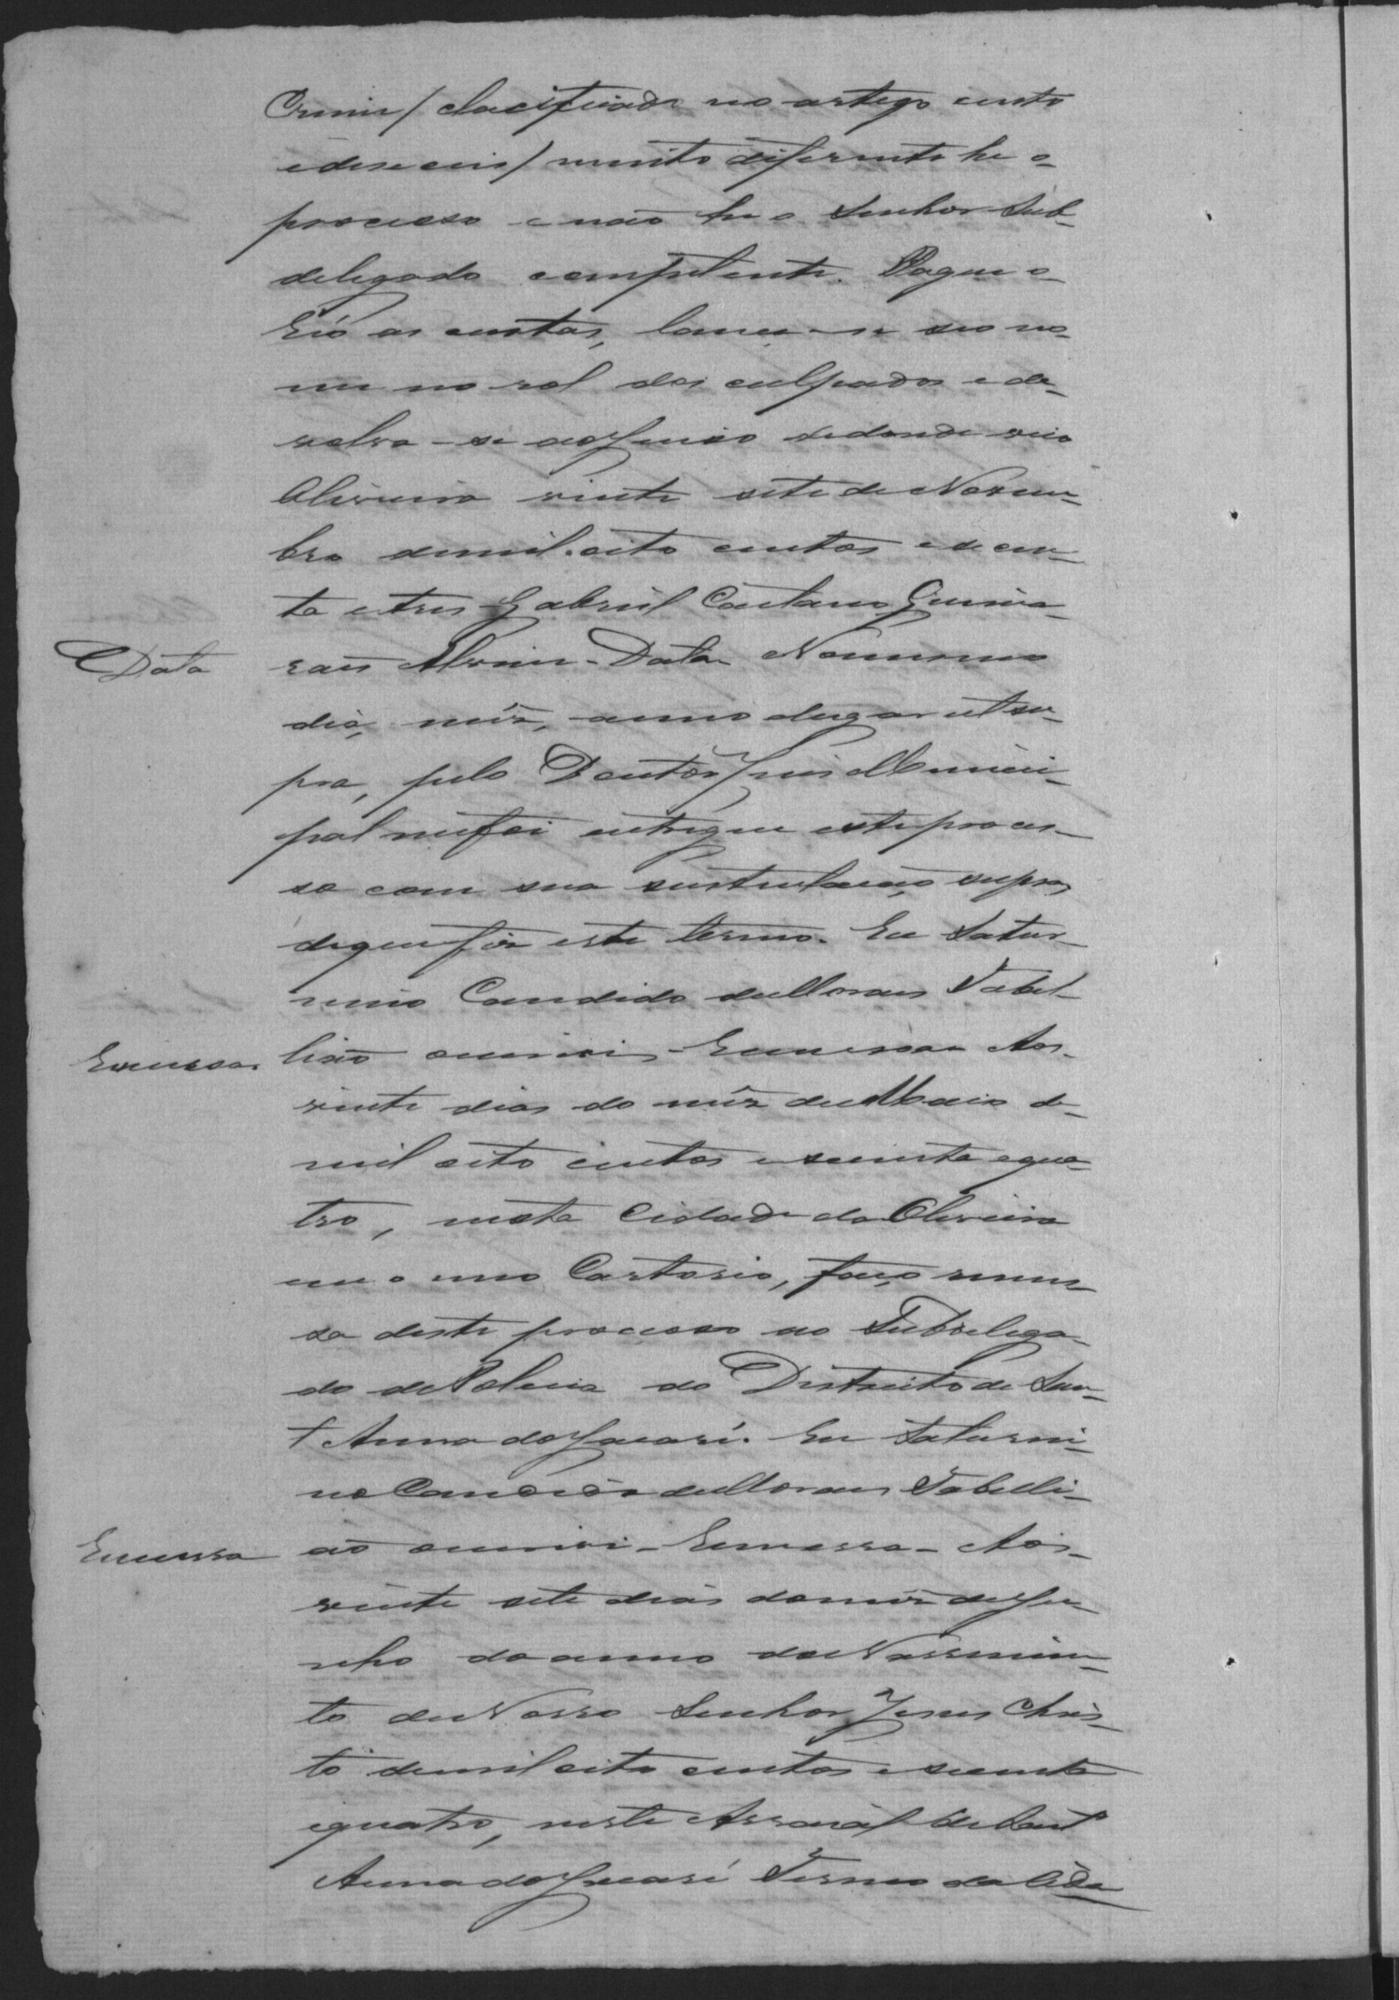 Crime/ clacificado no artigo cento
edeseceis/ muito diferente he o
processo e não he o Senhor Sub-
delegado competente. Pague o
Réo as custas, lance-se seo no-
me no rol dos culpados e de-
volva-se aoJuiso dedonde veio
Oliveira vinte sete deNovem-
bro demil oito centos esecen-
ta etres Gabriel Caetano Guima-
raes Alvim - Data - Nomesmo
Data
dia, mêz, anno elugar ut su-
pra, pelo Doutor Juis Munici-
pal mefoi entregue este proces-
so com sua sustentação supra,
dequefiz este termo. Eu Satur-
nino Candido deMoraes Tabel-
lião oescrevi - Remessa - Aos
Remessa.
vinte dias do mêz deMaio de
mil oito centos esecenta equa-
tro, nesta Cidade da Oliveira
em o meo Cartorio, faço remes-
sa deste processo ao Subdelega-
do dePolicia do Districto de San-
t Anna doJacaré. Eu Saturni-
no Candido deMoraes Tabelli-
ão oescrevi - Remessa - Aos
Remessa
vinte sete dias domêz deJu-
nho doanno doNassimen-
to deNosso Senhor Jesus Chris-
to demil oito centos esecenta
equatro, neste Arraial deSant
Anna doJacaré Termo da Cida